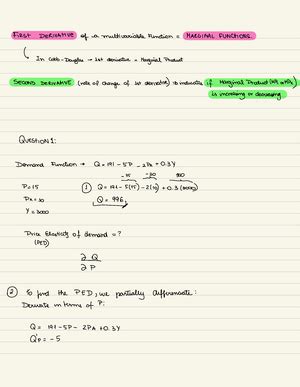 FIRST DERIVATIVE of a multivariable function = MARGINAL FUNCTIONS.
In Cobb-Douglas → 1st derivative = Marginal Product
SECOND DERIVATIVE (rate of change of 1st derivative) → indicates if Marginal Product
is increasing or decreasing
QUESTION 1:
Demand Function → Q = 191 - 5P - 2PA + 0.3Y
P = 15
① Q = 191 - 5(15) - 2(10) + 0.3(3000)
PA = 10
Q = 996
Y = 3000
Price Elasticity of demand = ?
(PED)
∂Q
∂P
② To find the PED, we partially differentiate:
Derivate in terms of P:
Q = 191 - 5P - 2PA + 0.3Y
Q'P = -5